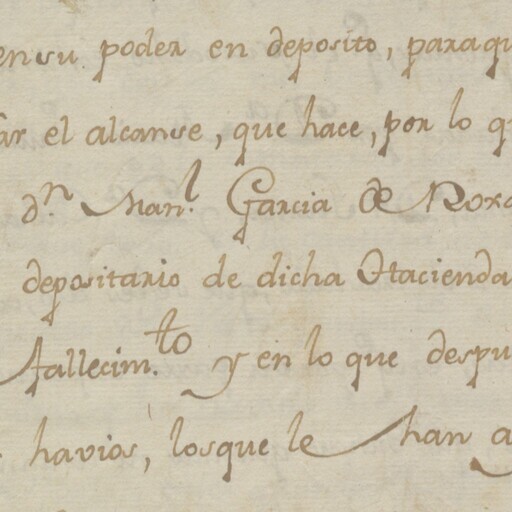 ensu poder en deposito, paraqu
ar el alcanse, que hace, por lo q
dn. Manl. Garcia de Nor
depositario de dicha Hacienda
fallecim.to y en lo que despu
havios, losque le han a